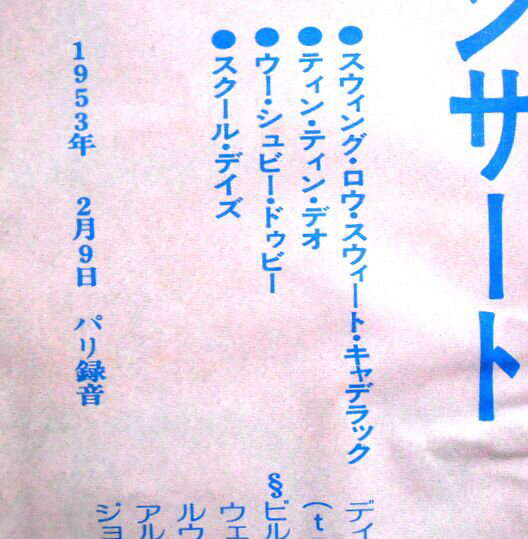 ンサート
●スウィング・ロウ・スウィート・キャデラック
●ティン・ティン・デオ
●ウー・シュビー・ドゥビー
●スクール・デイズ
1953年 2月9日 パリ録音
ディ
(t
§ビル
ウエ
ルウ
アル
ジョ